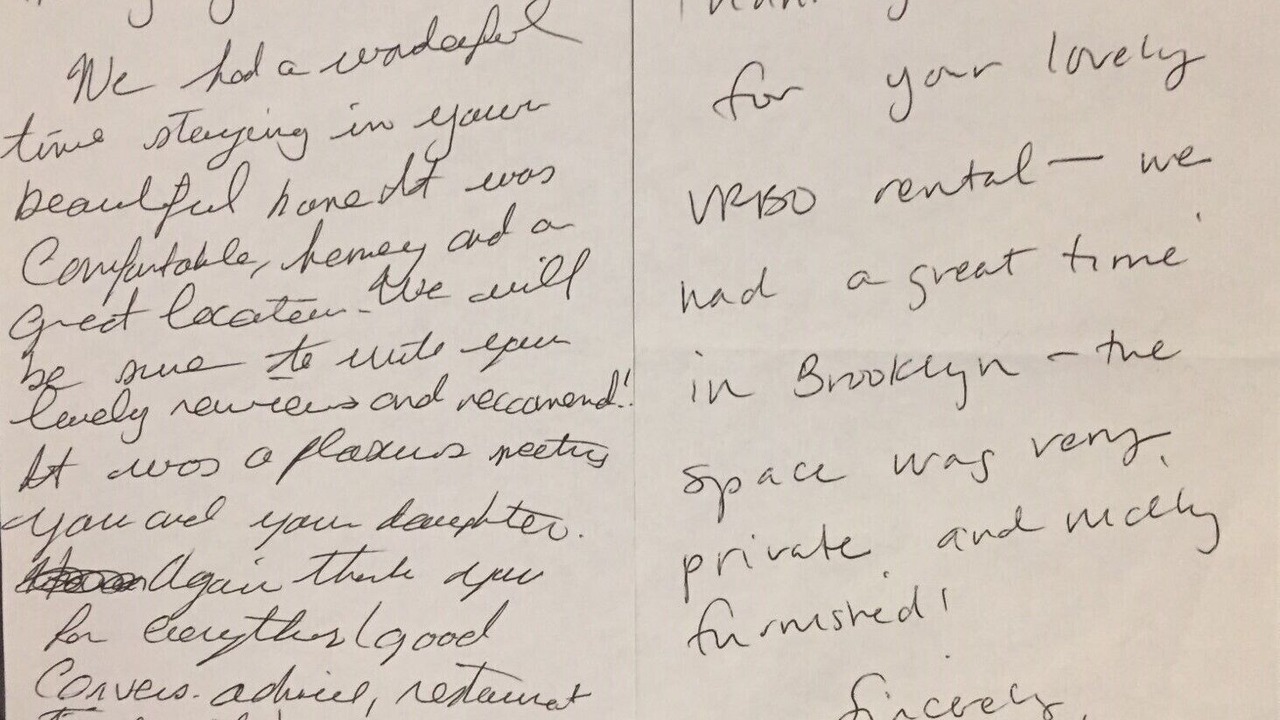 We had a wonderful
time staying in your
beautiful home It was
Comfortable, homey and a
great location. We will
be sure to write you
lovely reviews and reccomend!!
It was a pleasure meeting
you and your daughter.
Again thank you
for everything (good
Convers. advice, restaurant
Thank
for your lovely
VRBO rental — we
had a great time
in Brooklyn — the
space was very
private and nicely
furnished!
Sincerely,